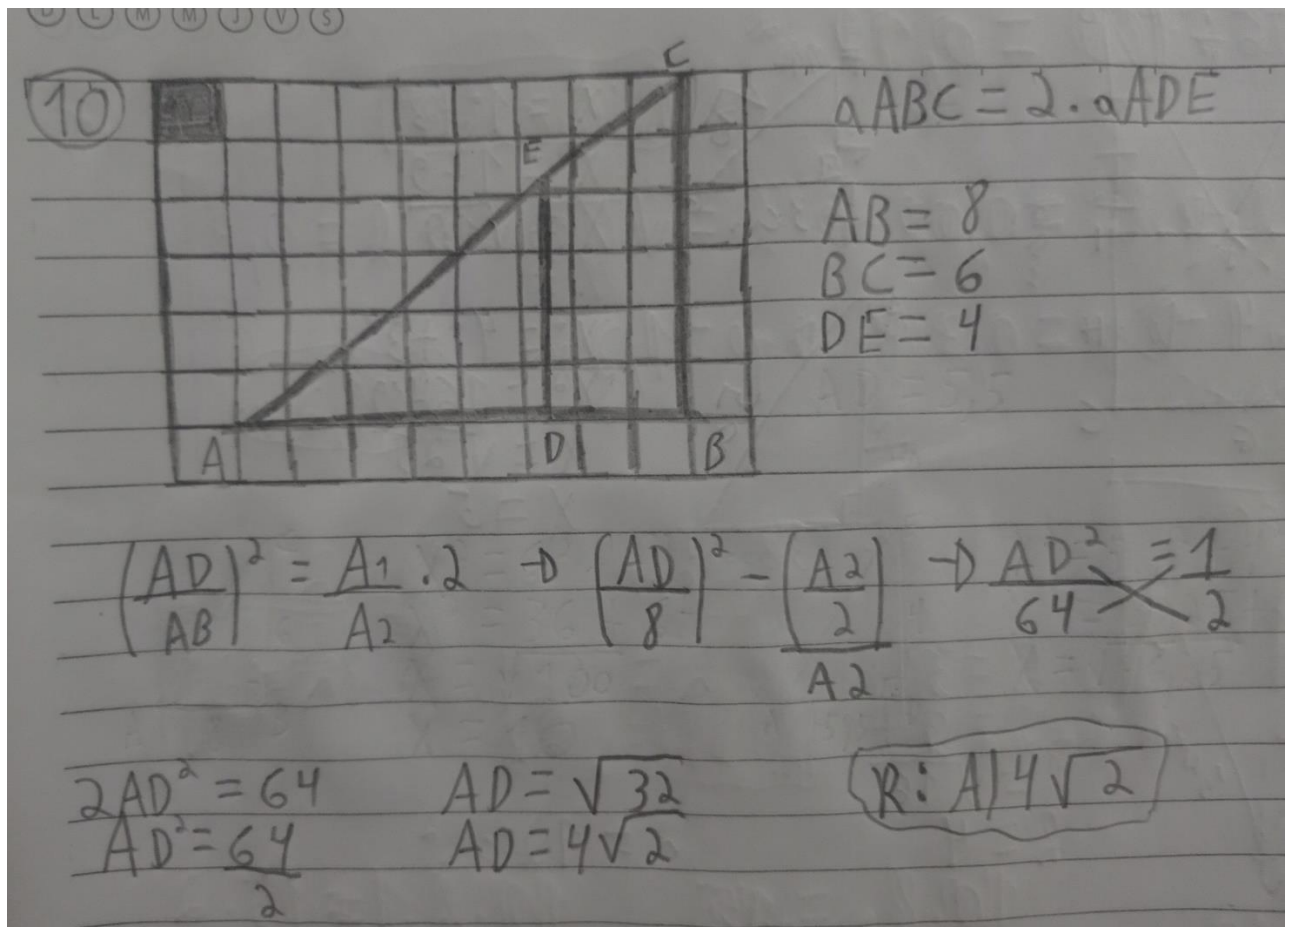 D L M M J V S
10
1
C
E
A
D
B
aABC = 2 . aADE
AB = 8
BC = 6
DE = 4
(AD/AB)² = A1/A2 . 2 → (AD/8)² - (A2/2)/A2 → AD²/64 = 1/2
2AD² = 64
AD² = 64/2
AD = √32
AD = 4√2
R: A) 4√2